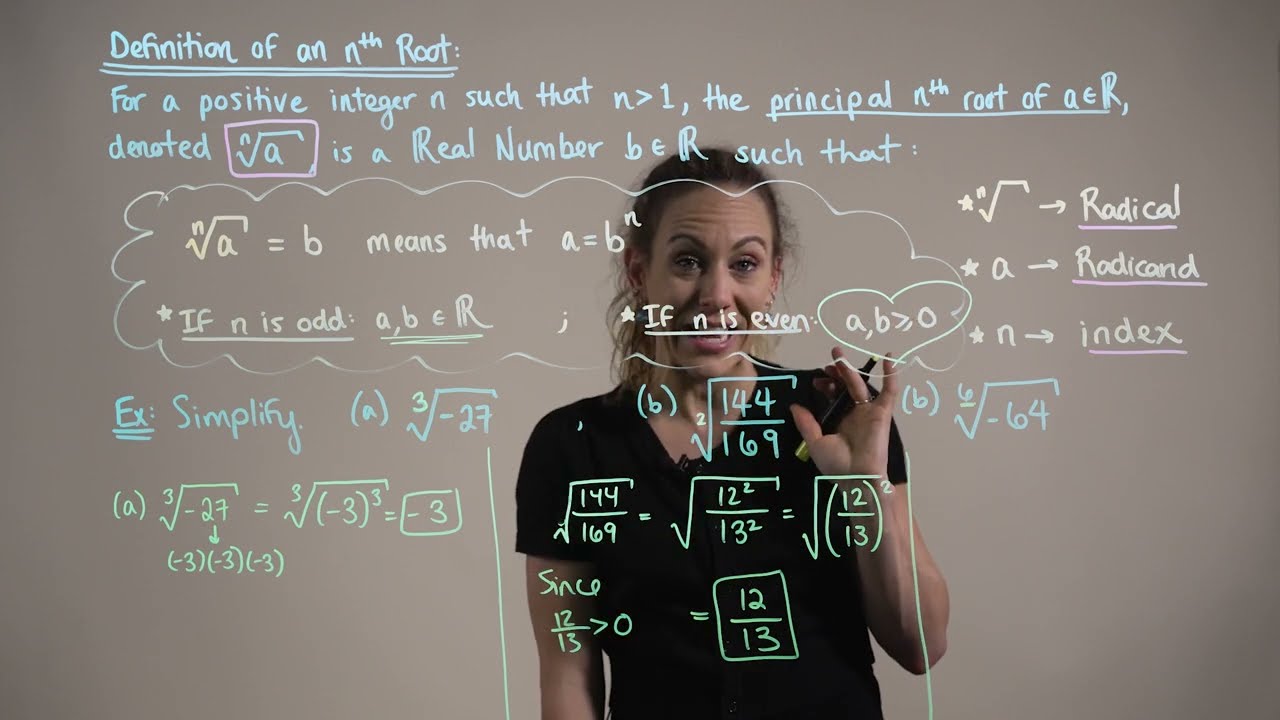 Definition of an nth Root:
For a positive integer n such that n>1, the principal nth root of a∈ℝ,
denoted ⁿ√a is a Real Number b∈ℝ such that:
ⁿ√a = b means that a=bⁿ
*If n is odd: a,b ∈ ℝ ; *If n is even: a,b⩾0
*ⁿ√ → Radical
* a → Radicand
* n → index
Ex: Simplify. (a) ³√-27 , (b) ²√144/169 (b) ⁶√-64
(a) ³√-27 = ³√(-3)³ = -3
(-3)(-3)(-3)
²√144/169 = √12²/13² = √(12/13)²
Since
12/13 >0 = 12/13